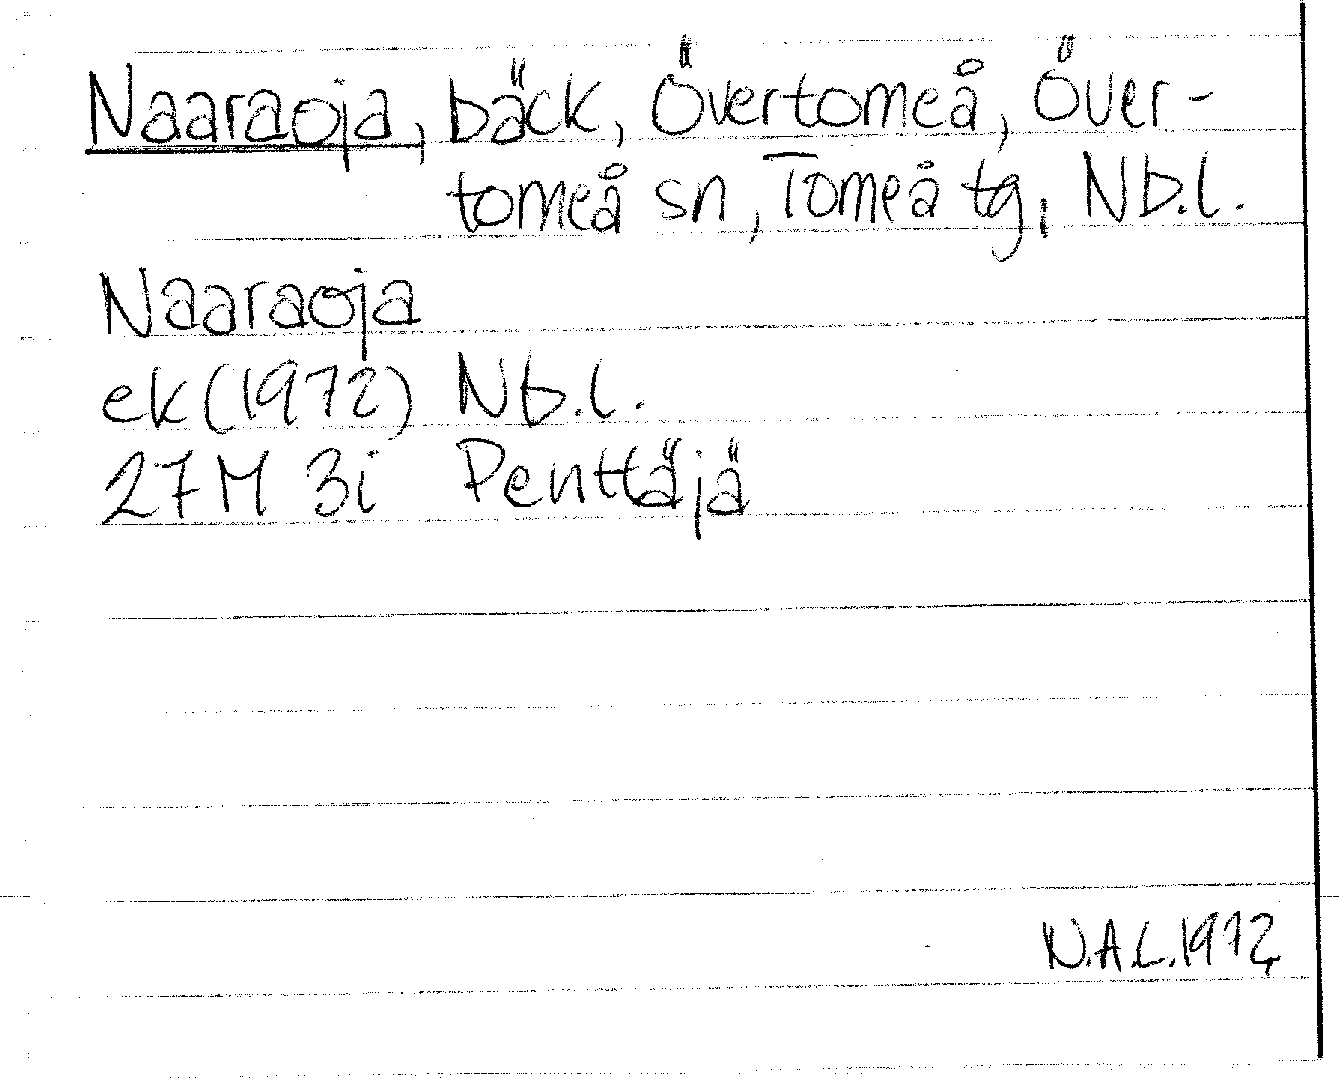 Naaraoja, bäck, Övertorneå, Över-
torneå sn, Torneå tg, Nb.l.
Naaraoja
ek (1972) Nb.l.
27M 3i Penttäjä
N.A.L. 1972